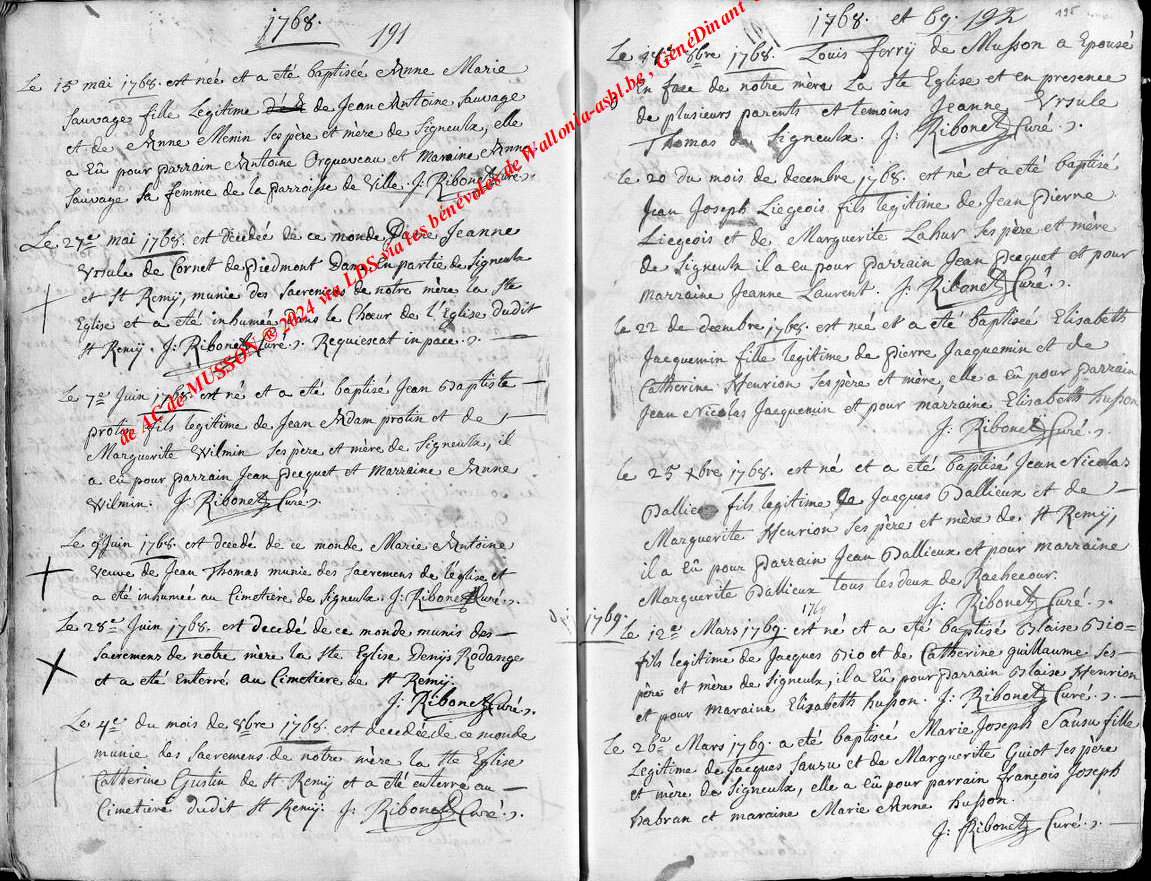 1768.
191
Le 15 mai 1768. est neé et a été baptisée Anne Marie
Sauvage fille Legitime de Jean Antoine Sauvage
et de Anne Menin Ses pere et mère de Signeulx, elle
a Eû pour parrain Antoine Orquevaux et Maraine Anne
Sauvage Sa femme de la parroisse de Ville. J: Ribonet Curé.
Le 27e mai 1768. est decedée de ce monde Dame Jeanne
Ursule de Cornet de Piedmont Dame En partie de Signeulx
et St Remÿ, munie des Sacremens de notre mère la Ste
Eglise et a été inhumée dans le Chœur de l'Eglise dudit
St Remÿ. J: Ribonet Curé. Requiescat in pace.
Le 7e Juin 1768. est né et a été baptisé Jean Baptiste
protin fils legitime de Jean Adam protin et de
Marguerite Wilmin Ses père et mère de Signeulx, il
a eu pour parrain Jean Pecquet et Marraine Anne
Wilmin. J. Ribonet Curé.
Le 9e Juin 1768. est decedé de ce monde Marie Antoine
veuve de Jean Thomas munie des Sacremens de l'eglise et
a été inhumée au Cimetière de Signeulx. J: Ribonet Curé.
Le 28e Juin 1768. est decedé de ce monde munis des
Sacremens de notre mère la Ste Eglise Denÿs Rodange
et a été Enterré au Cimetiere de St Remÿ.
J: Ribonet Curé.
Le 4e du mois de 8bre 1768. est decedée de ce monde
munie des Sacremens de notre mère la Ste Eglise
Catherine Gustin de St Remÿ et a été enterre au
Cimetiere dudit St Remÿ. J: Ribonet Curé.
1768 et 69. 192
195
Le 8bre 1768. Louis ferrÿ de Musson a Epousé
En face de notre mère La Ste Eglise et en presence
de plusieurs parents et temoins Jeanne Ursule
Thomas de Signeulx. J: Ribonet Curé.
Le 20 du mois de decembre 1768. est né et a été baptisé
Jean Joseph Liegeois fils legitime de Jean Pierre
Liegeois et de Marguerite Lahur Ses père et mère
de Signeulx il a eu pour parrain Jean Pecquet et pour
Marraine Jeanne Laurent. J. Ribonet Curé.
Le 22 de decembre 1768. est neé et a été baptiseé Elisabeth
Jacquemin fille legitime de Pierre Jacquemin et de
Catherine Henrion Ses père et mère, elle a eû pour parrain
Jean Nicolas Jacquemin et pour marraine Elisabeth husson
J. Ribonet Curé.
Le 25 xbre 1768. est né et a été baptisé Jean Nicolas
Dallieux fils legitime de Jacques Dallieux et de
Marguerite Henrion Ses père et mère de St Remÿ,
il a Eû pour parrain Jean Dallieux et pour marraine
Marguerite Dallieux tous les deux de Rachecour.
J. Ribonet Curé.
1769.
Le 12e Mars 1769. est né et a été baptisé Blaise Bio
fils legitime de Jacques Bio et de Catherine guillaume Ses
père et mère de Signeulx, il a Eû pour parrain Blaise Henrion
et pour maraine Elizabeth husson. J. Ribonet Curé.
Le 26e Mars 1769. a été baptisée Marie Joseph Sausu fille
Legitime de Jacques Sausu et de Marguerite Guiot Ses père
et mere de Signeulx, elle a eû pour parrain françois Joseph
habran et maraine Marie Anne husson.
J: Ribonet Curé.
de AC de MUSSON ® 2024 via LDS via les bénévoles de Wallonia-asbl.be, GenéDinant